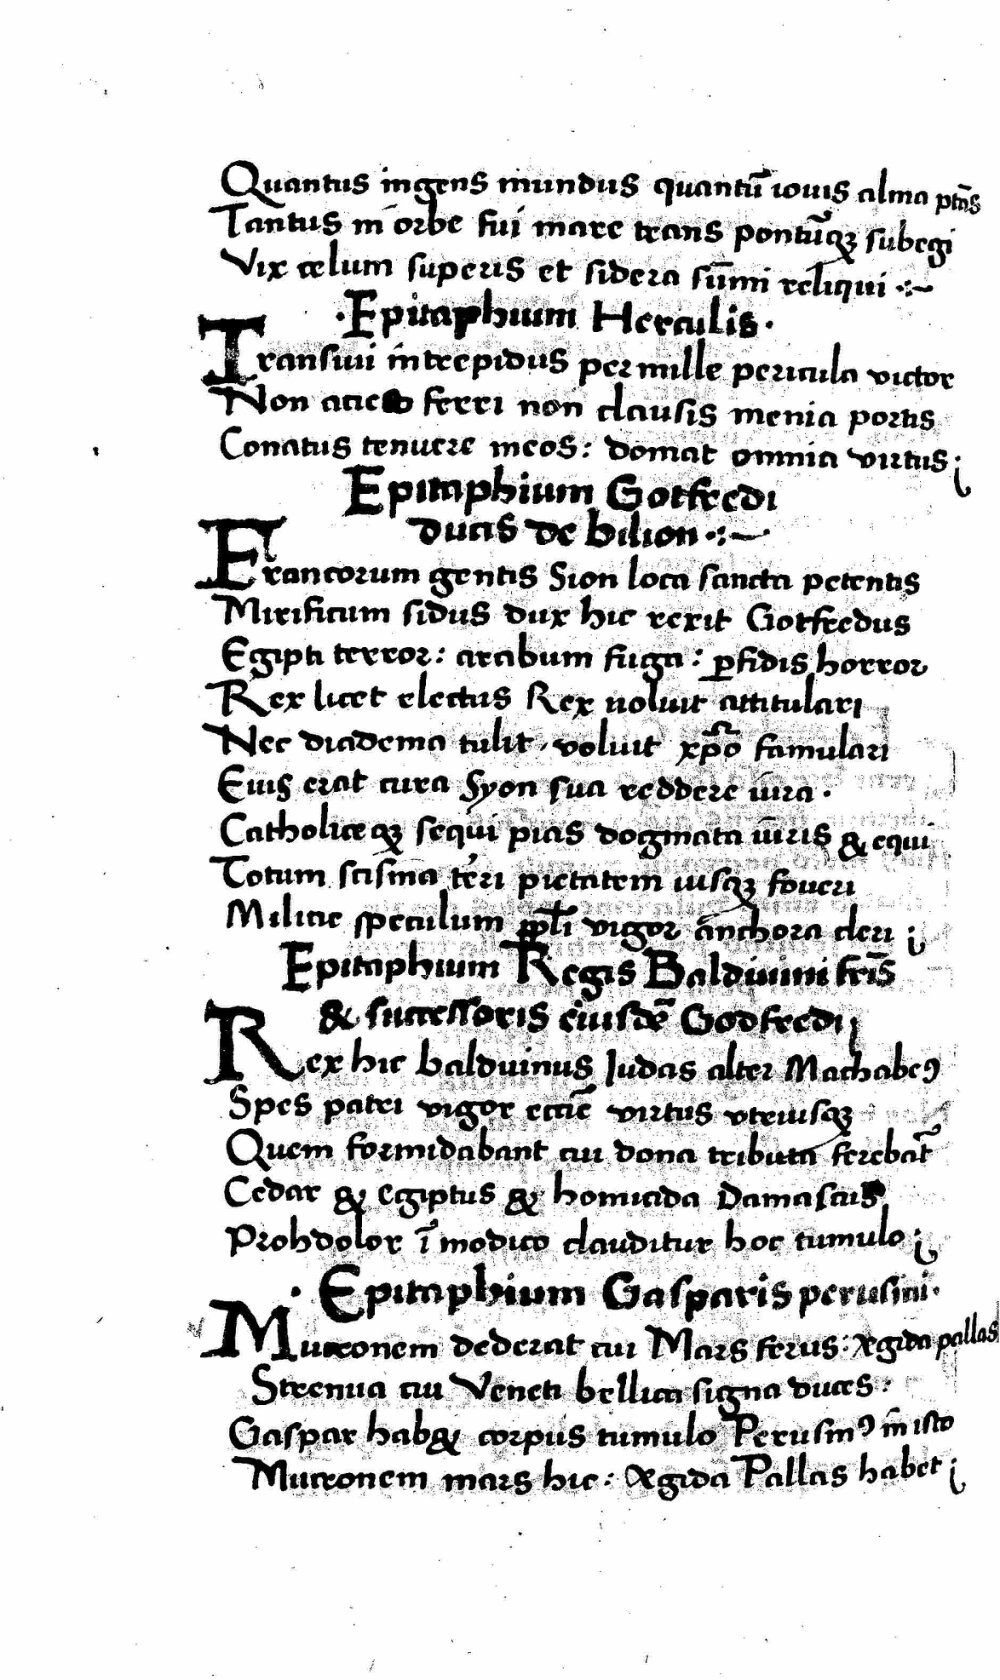 Quantus ingens mundus quantũ iouis alma ptãs
Tantus in orbe fui mare trans pontũqꝫ subegi
Vix celum superis et sidera sũmi reliqui
Epitaphium Herculis.
Transiui intrepidus per mille pericula victor
Non acies ferri non clausis menia portis
Conatus tenuere meos: domat omnia virtus;
Epitaphium Gotfredi
ducis de bilion
Francorum gentis Sion loca sancta petentis
Mirificum sidus dux hic rexit Gotfredus
Egipti terror: arabum fuga: ꝑfidis horror
Rex licet electus Rex uoluit attitulari
Nec diadema tulit, voluit xp̃o famulari
Eius erat cura Syon sua reddere iura.
Catholiceqꝫ sequi pias dogmata iuris & equi
Totum scisma teri pietatem iusqꝫ foueri
Milicie speculum ppl̃i vigor anchora cleri;
Epitaphium Regis Balduuini fr̃is
& successoris eiusdẽ Godfredi;
Rex hic balduinus Iudas alter Machabeꝰ
Spes patri vigor ecciẽ virtus vtriusqꝫ
Quem formidabant cui dona tributa ferebãt
Cedar & egiptus & homicida Damascus
Prohdolor ĩ modico clauditur hoc tumulo;
Epitaphium Gasparis perusini.
Mucronem dederat cui Mars ferus: Ægida pallas
Strenua cui Veneti bellica signa duces:
Gaspar hab& corpus tumulo Perusinꝰ in isto
Mucronem mars hic: Ægida Pallas habet;